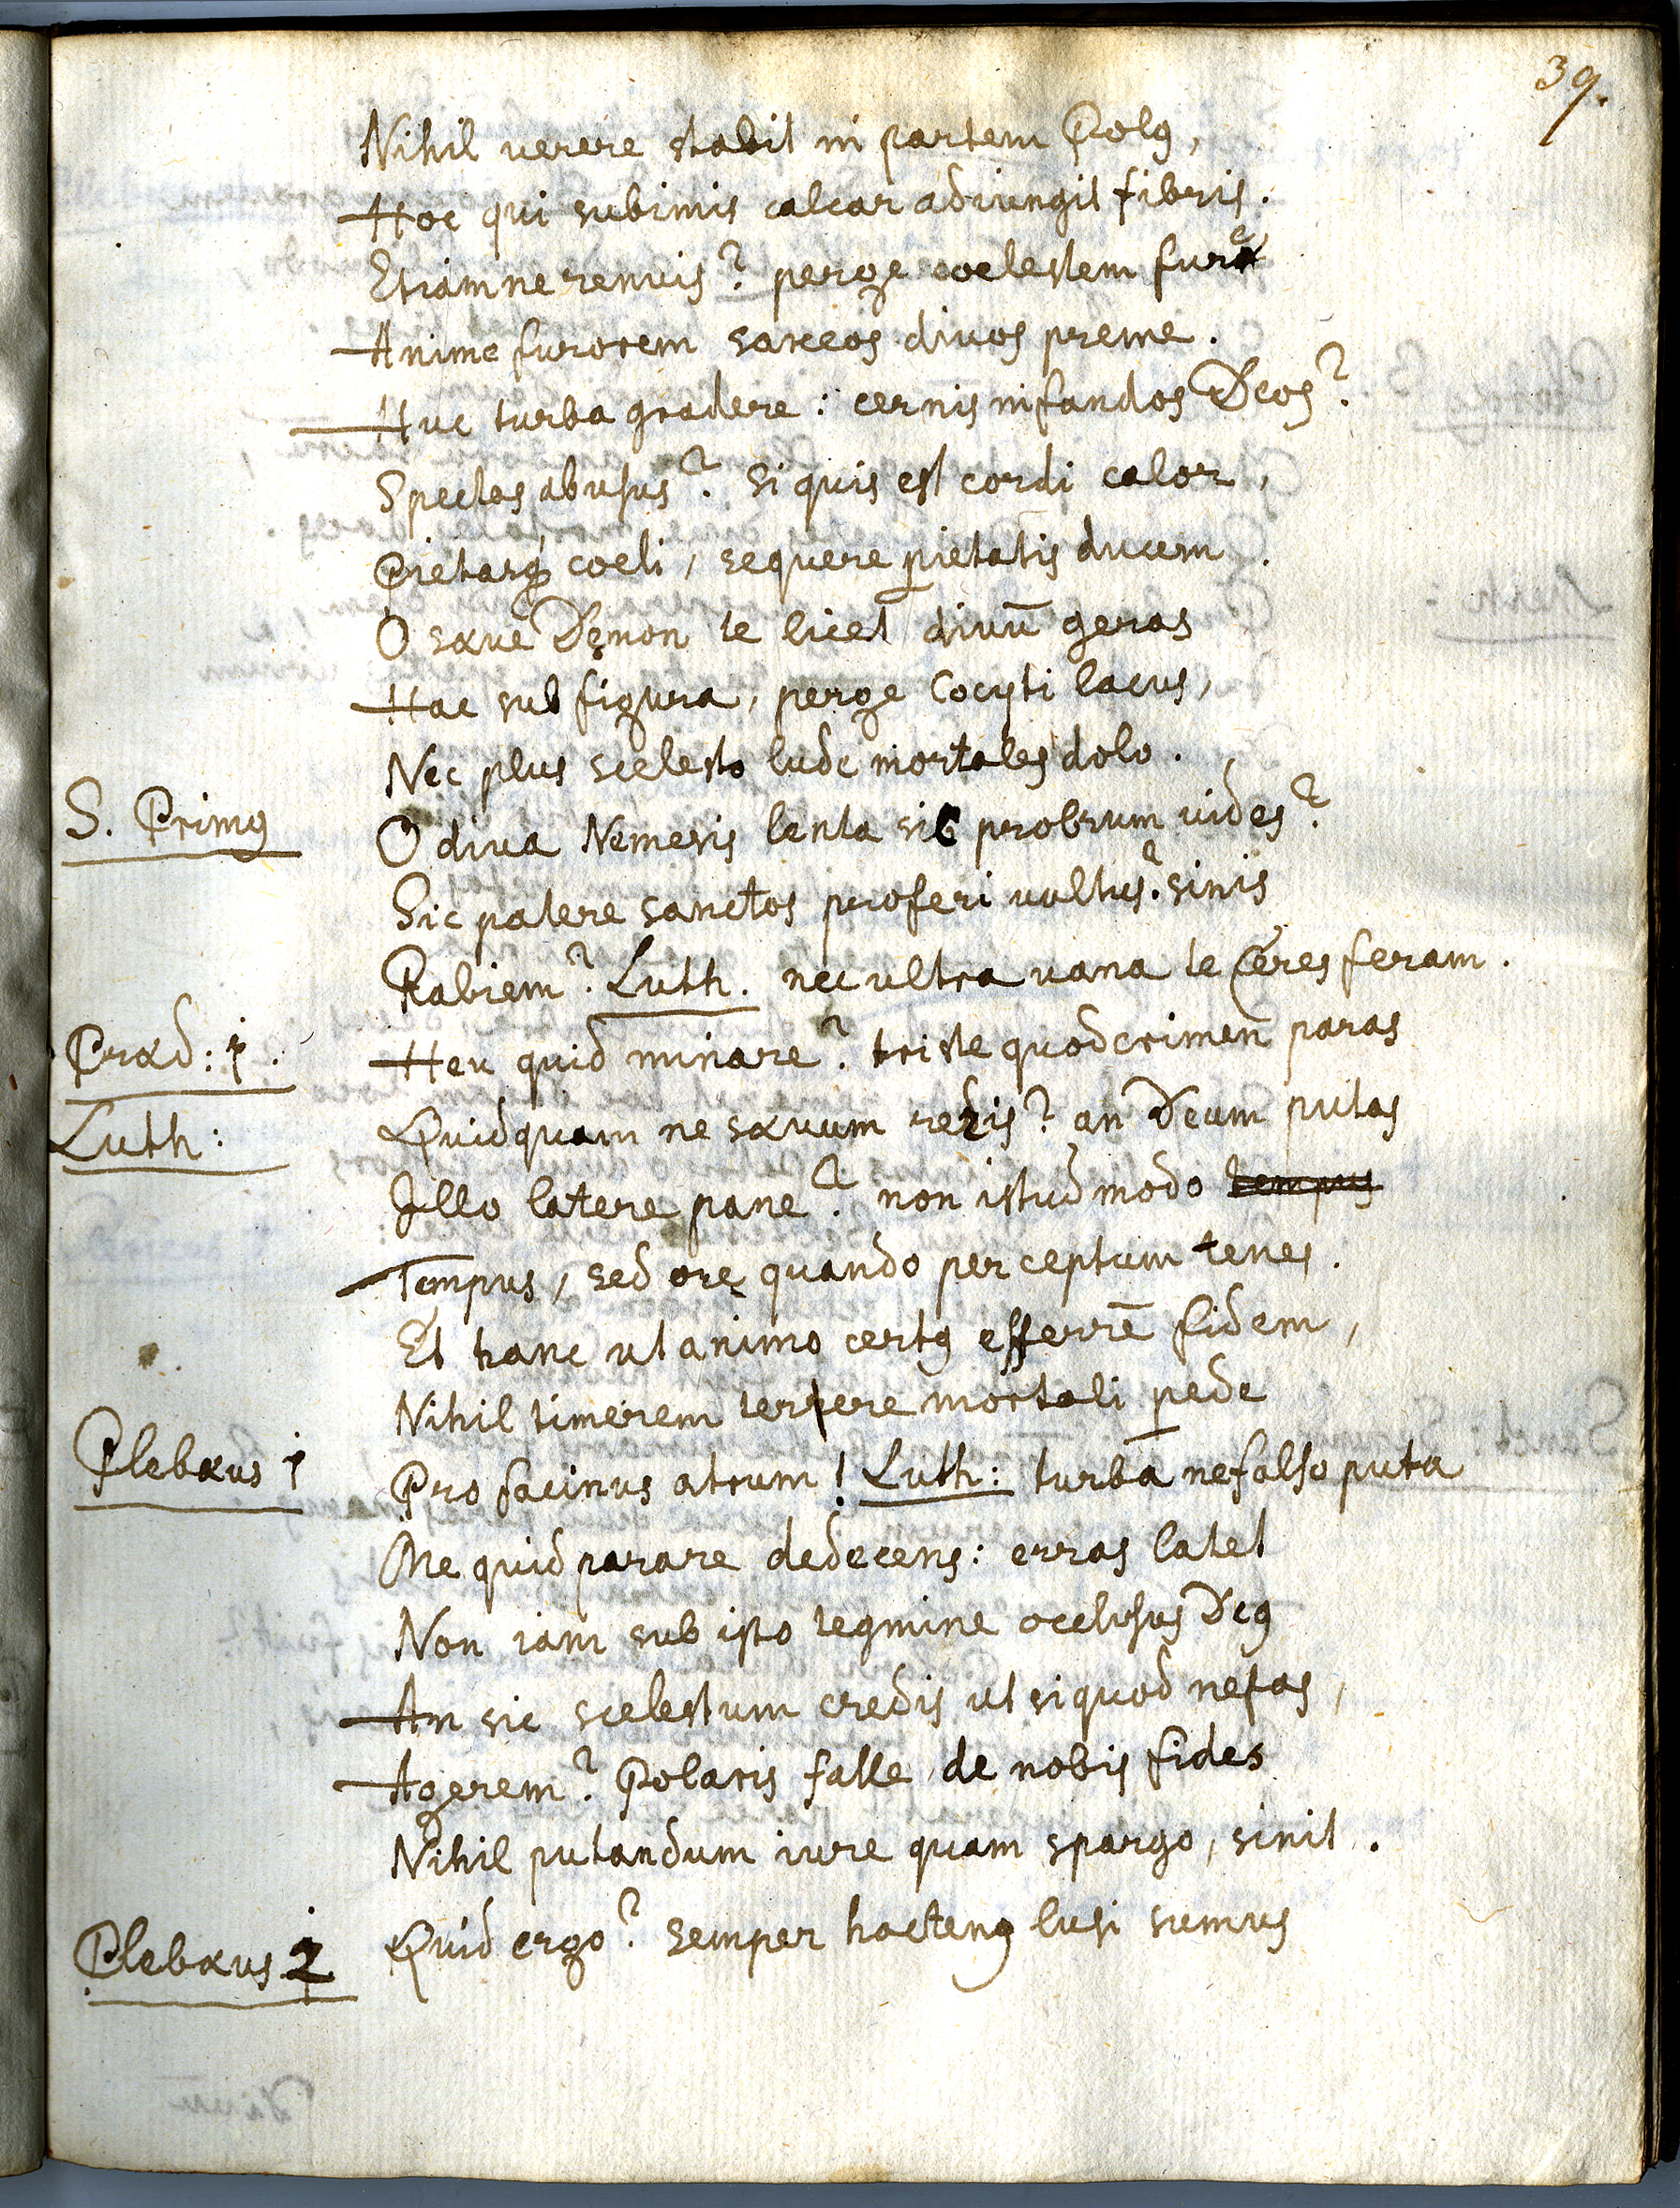 39.
Nihil verere stabit in partem Polꝰ,
Hoc qui subimis calcar adiungit fibris.
Etiamne renuis? perge coelestem fure
Anime furorem saxeos divos preme.
Huc turba gradere: cernis infandos Deos?
Spectas abusus? Si quis est cordi calor,
Pietasq coeli, sequere pietatis ducem.
O sæue Dęmon te licet diuū geras
Hac sub figura, perge Cocyti lacus,
Nec plus scelesto lude mortales dolo.
S. Primꝰ O diua Nemesis lenta sic probrum uides?
Sic patere sanctos proferi uultus? sinis
Rabiem? Luth. nec ultra uana te Ceres feram.
Præd: 1. Heu quid minare? triste quod crimen paras
Luth: Quidquam ne sæuum redis? an Deum putas
Illo latere pane? non istud modo tempus
Tempus, sed orę quando perceptum tenes.
Et hanc ut animo certꝰ efferrē fidem,
Nihil timerem terrere mortali pede
Plebæus 1 Pro facinus atrum! Luth: turba ne falso puta
Me quid parare dedecens: erras latet
Non iam sub isto tegmine oclusus Deꝰ
An sic scelestum credis ut si quod nefas,
Agerem? Polaris falle de nobis fides
Nihil putandum iure quam spargo, sinit.
Plebæus 2 Quid ergo? semper hactenꝰ lusi sumus